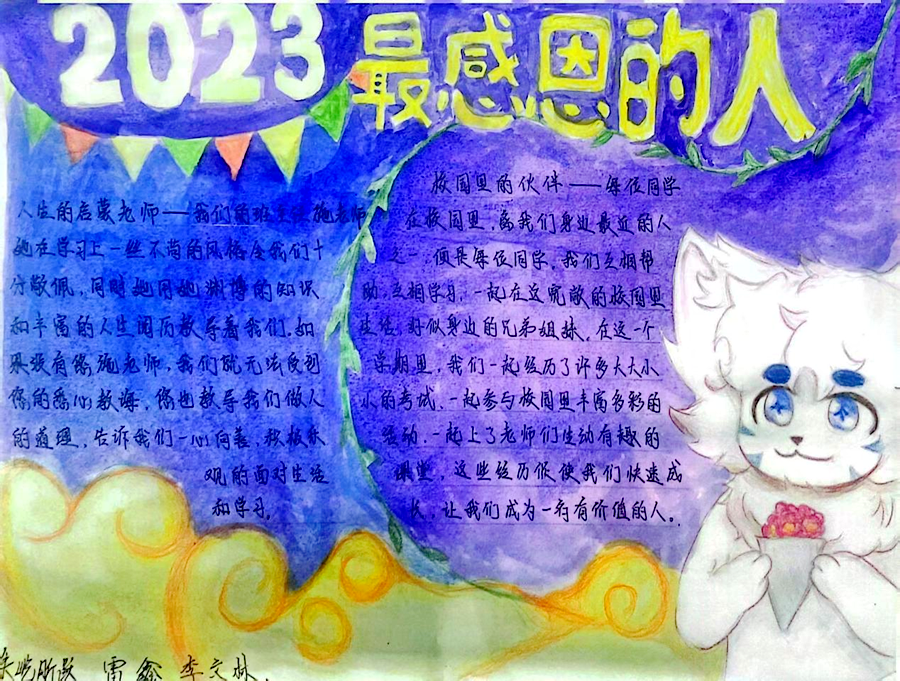 2023
最感恩的人
人生的启蒙老师——我们的班主任施老师
她在学习上一丝不苟的风格令我们十
分敬佩，同时她用她渊博的知识
和丰富的人生阅历教导着我们，如
果没有您施老师，我们就无法受到
您的悉心教诲，您也教导我们做人
的道理，告诉我们一心向善，积极乐
观的面对生活
和学习。
校园里的伙伴——每位同学
在校园里，离我们身边最近的人
之一便是每位同学，我们互相帮
助，互相学习，一起在这宽敞的校园里
生活，好似身边的兄弟姐妹，在这一个
学期里，我们一起经历了许多大大小
小的考试，一起参与校园里丰富多彩的
活动，一起上了老师们生动有趣的
课堂，这些经历促使我们快速成
长，让我们成为一行有价值的人。
雷鑫 李文林